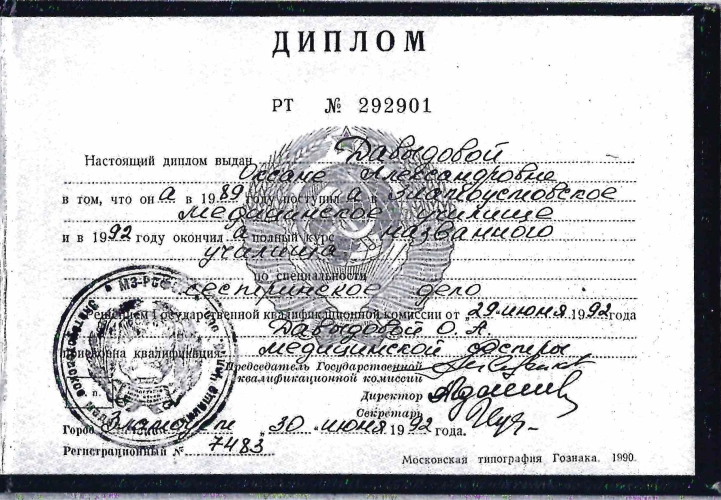 ДИПЛОМ
РТ № 292901
Настоящий диплом выдан Давыдовой
Оксане Александровне
в том, что он а в 1989 году поступил а в Златоустовское
медицинское училище
и в 1992 году окончил а полный курс названного
училища
по специальности
сестринское дело
Решением Государственной квалификационной комиссии от 29 июня 1992 года
Давыдовой О. А.
присвоена квалификация медицинской сестры
Председатель Государственной
квалификационной комиссии
Директор
Секретарь
Город Златоуст „30 “ июня 1992 года.
Регистрационный № 7483
Московская типография Гознака. 1990.